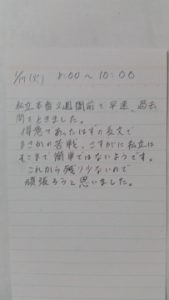 1/19(火) 8:00〜10:00
私立本番2週間前で早速、過去
問をときました。
得意であったはずの長文で
まさかの苦戦、さすがに私立は
そこまで簡単ではないようです。
これから残り少ないので
頑張ろうと思いました。